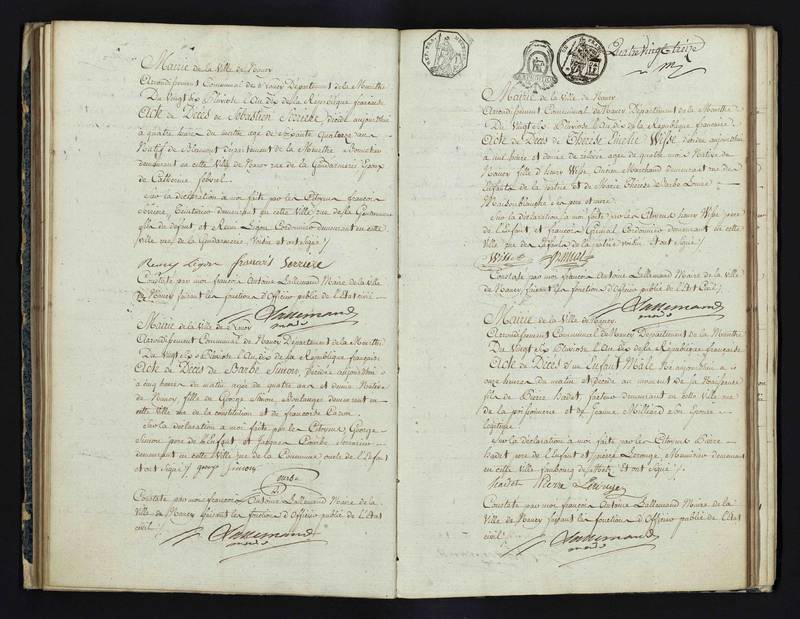 Mairie de la Ville de Nancy
Arrondissement Communal de Nancy Département de la Meurthe
Du Vingt Six Pluviose l'an dix de la République française
Acte de Décès de Sébastien Serriere décédé aujourdhui
à quatre heures du matin agé de soixante quatorze ans
Natif de département de la Meurthe
demeurant en cette Ville de Nancy rue de la Gendarmerie Epoux
de Catherine
Sur la déclaration à moi faite par les Citoyens françois
Serriere, demeurant en cette Ville rue de la Gendarmerie
fils du défunt et Remi Cordonnier demeurant en cette
Ville rue de la Gendarmerie, Voisin et ont signé /
Remy françois Serriere
Constaté par moi françois Antoine Lallemand Maire de la ville
de Nancy faisant les fonctions d'Officier public de l'Etat civil
Lallemand
maire
Mairie de la Ville de Nancy
Arrondissement Communal de Nancy Département de la Meurthe
Du Vingt Six Pluviose l'an dix de la République française
Acte de Décès de Barbe Simon, décédée aujourdhui
à cinq heures du matin agée de quatre ans et demi Native
de Nancy, fille de George Simon, Boulanger demeurant en
cette Ville rue de la constitution et de françoise
Sur la déclaration à moi faite par les Citoyens George
Simon pere de l'Enfant et Jacques
demeurant en cette Ville rue de la Commune oncle de l'Enfant
et ont signé / george Simon
Constaté par moi françois Antoine Lallemand Maire de la
Ville de Nancy faisant les fonctions d'Officier public de l'Etat
civil /
Lallemand
maire
Quatre Vingt treize
Mairie de la Ville de Nancy
Arrondissement Communal de Nancy Département de la Meurthe
Du Vingt Six Pluviose l'an dix de la République française
Acte de Décès de Thérese Wisse décédée aujourdhui
à une heure et demie de relevée agée de quatre mois Native de
Nancy fille d'henry Wisse Ancien Marchand demeurant rue des
Enfants de la patrie et de Marie Thérese Barbe
ses pere et mere
Sur la déclaration à moi faite par les Citoyens henry Wisse pere
de l'Enfant et françois Cordonnier demeurant en cette
Ville rue des Enfants de la patrie voisin et ont signé /
Wisse
Constaté par moi françois Antoine Lallemand Maire de la Ville
de Nancy faisant les fonctions d'Officier public de l'Etat Civil /
Lallemand
maire
Mairie de la Ville de Nancy
Arrondissement Communal de Nancy Département de la Meurthe
Du Vingt Six Pluviose l'an dix de la République française
Acte de Décès d'un Enfant Mâle Né aujourdhui à
onze heures du matin et décédé au moment de sa Naissance
fils de Pierre Badet facteur demeurant en cette Ville rue
de la et de Jeanne son Epouse
légitime
Sur la déclaration à moi faite par les Citoyens Pierre
Badet pere de l'Enfant et pierre Lerouge, Menuisier demeurant
en cette ville faubourg et ont signé /
Badet Pierre Lerouge
Constaté par moi françois Antoine Lallemand Maire de la
Ville de Nancy faisant les fonctions d'Officier public de l'Etat
civil /
Lallemand
maire